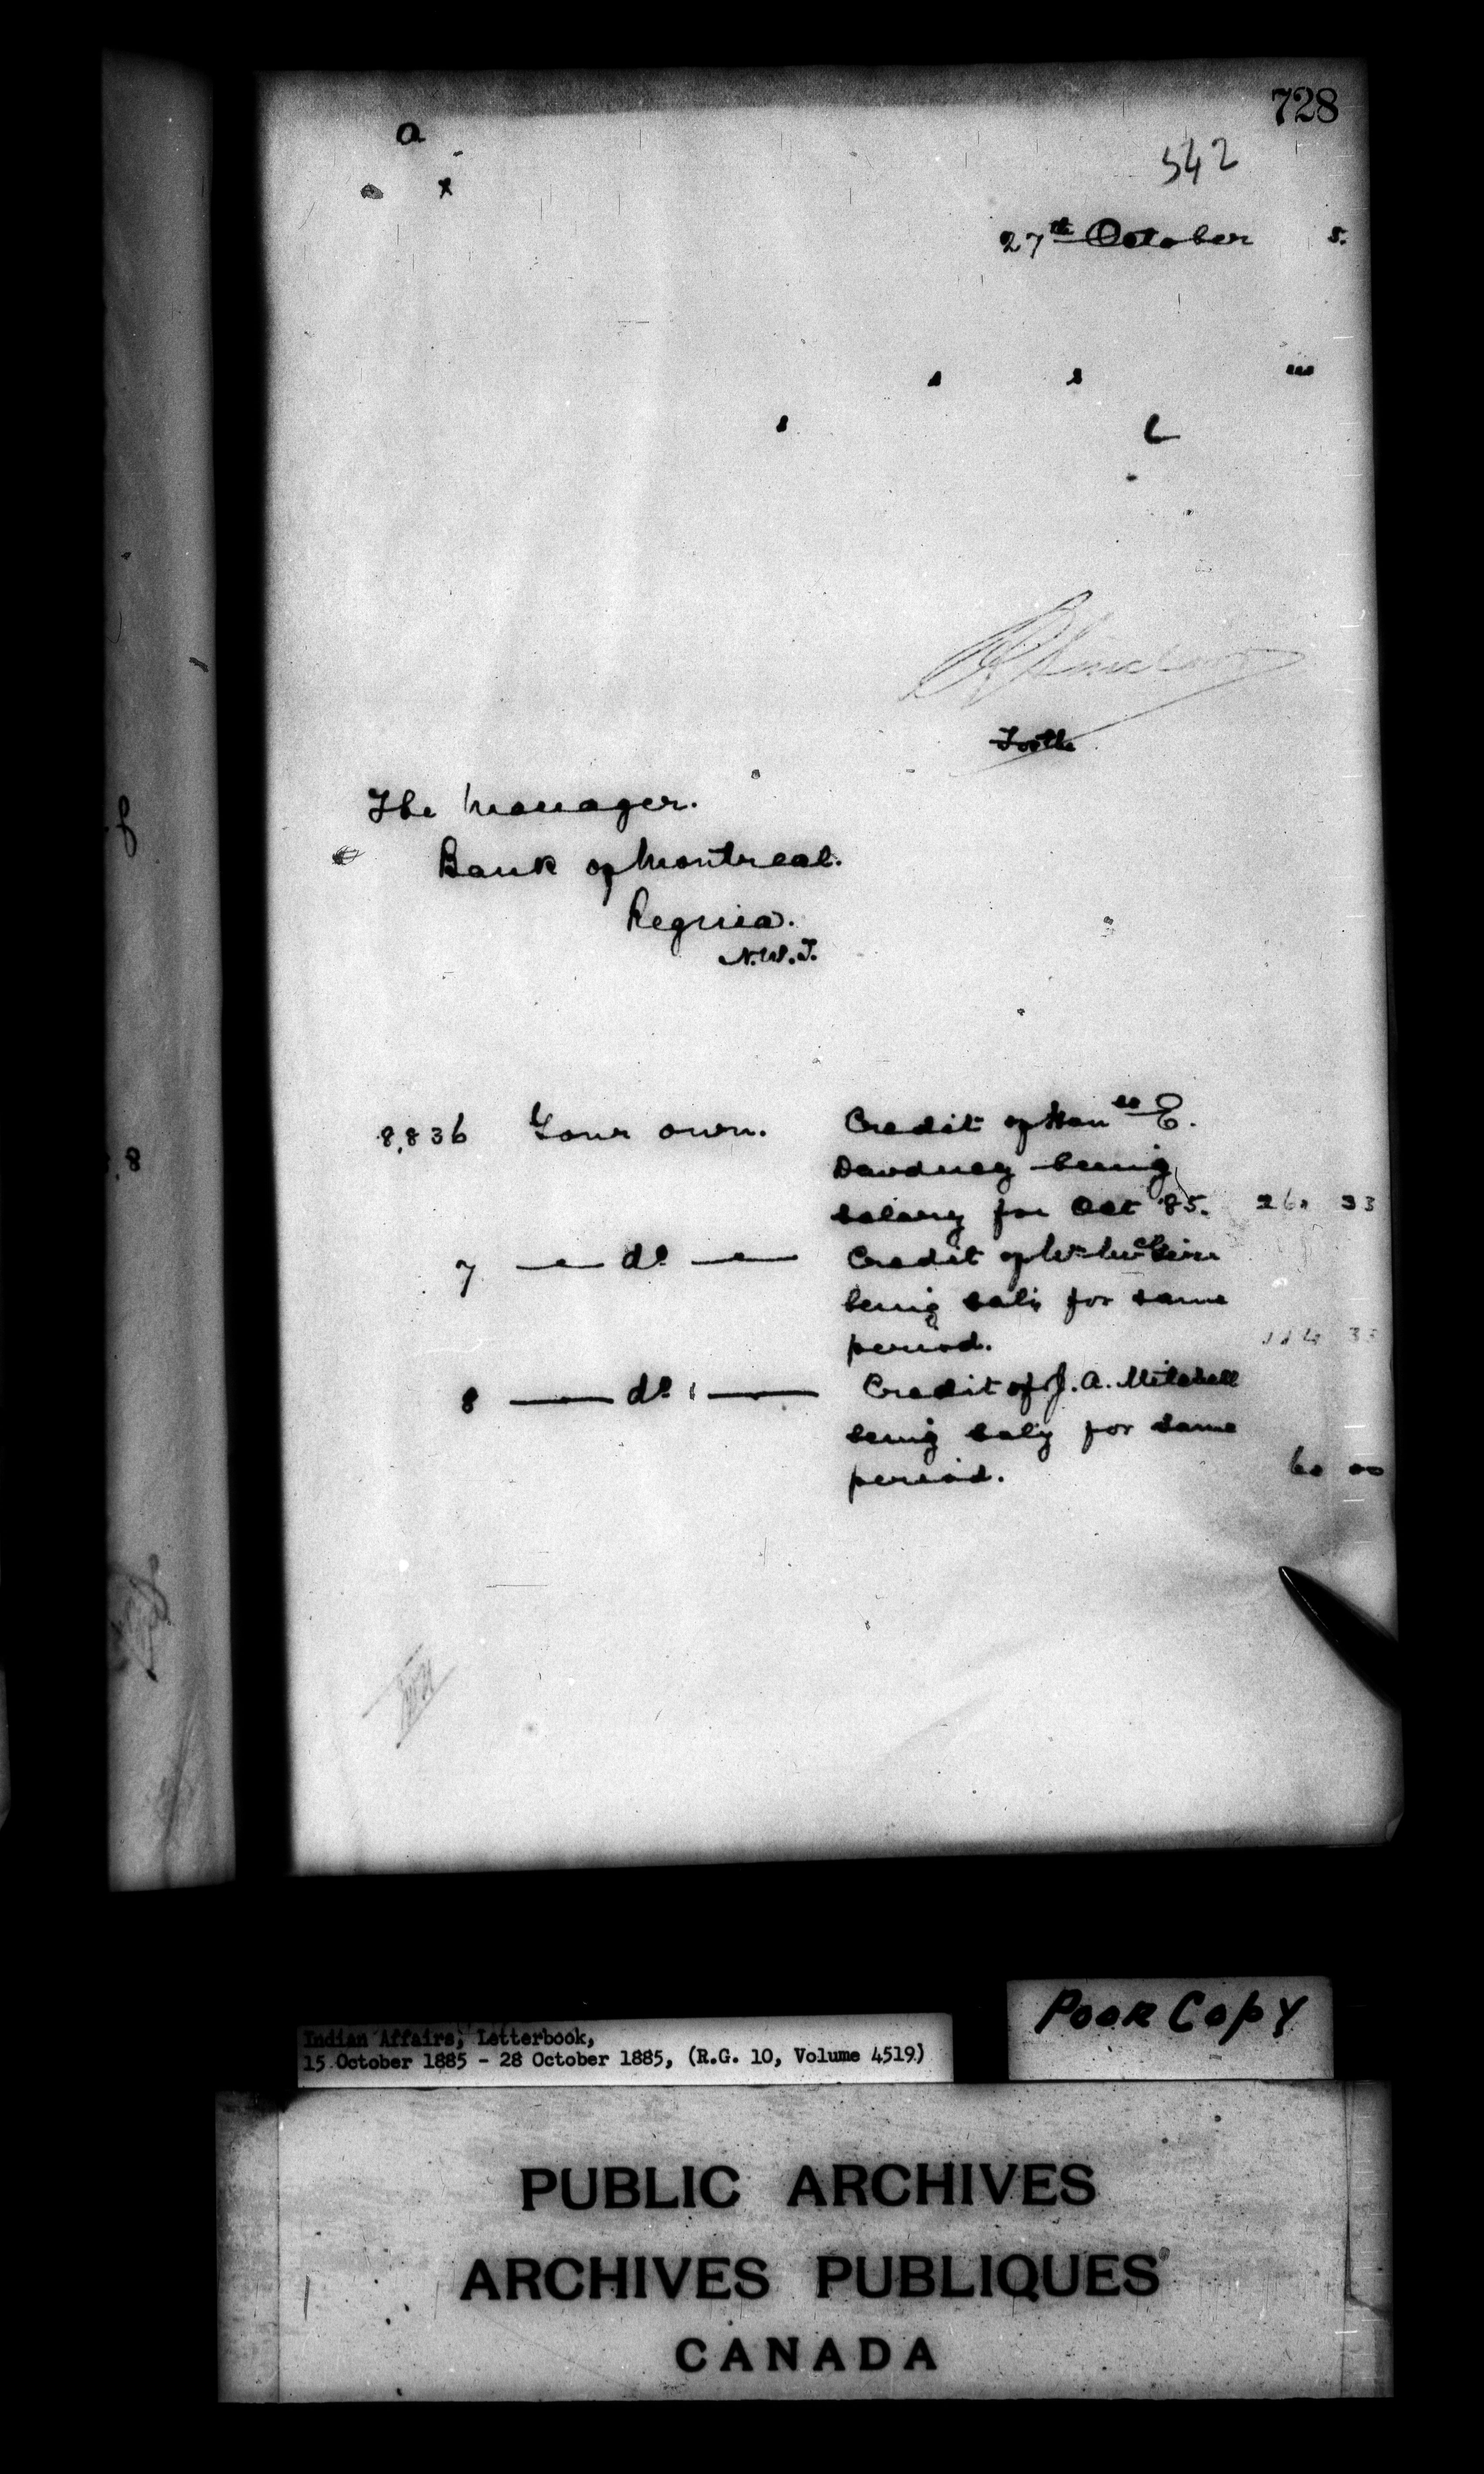 728
542
27th October 5.
The Manager.
Bank of Montreal.
Regina.
N.W.T.
8,836 Your own. Credit of Honble E.
Dewdney being
salary for Oct '85. 33
7 — do — Credit of
being saly for same
period.
8 — do — Credit of J. A. Mitchell
being saly for same
period. 60 00
Poor Copy
Indian Affairs, Letterbook,
15 October 1885 - 28 October 1885, (R.G. 10, Volume 4519)
PUBLIC ARCHIVES
ARCHIVES PUBLIQUES
CANADA